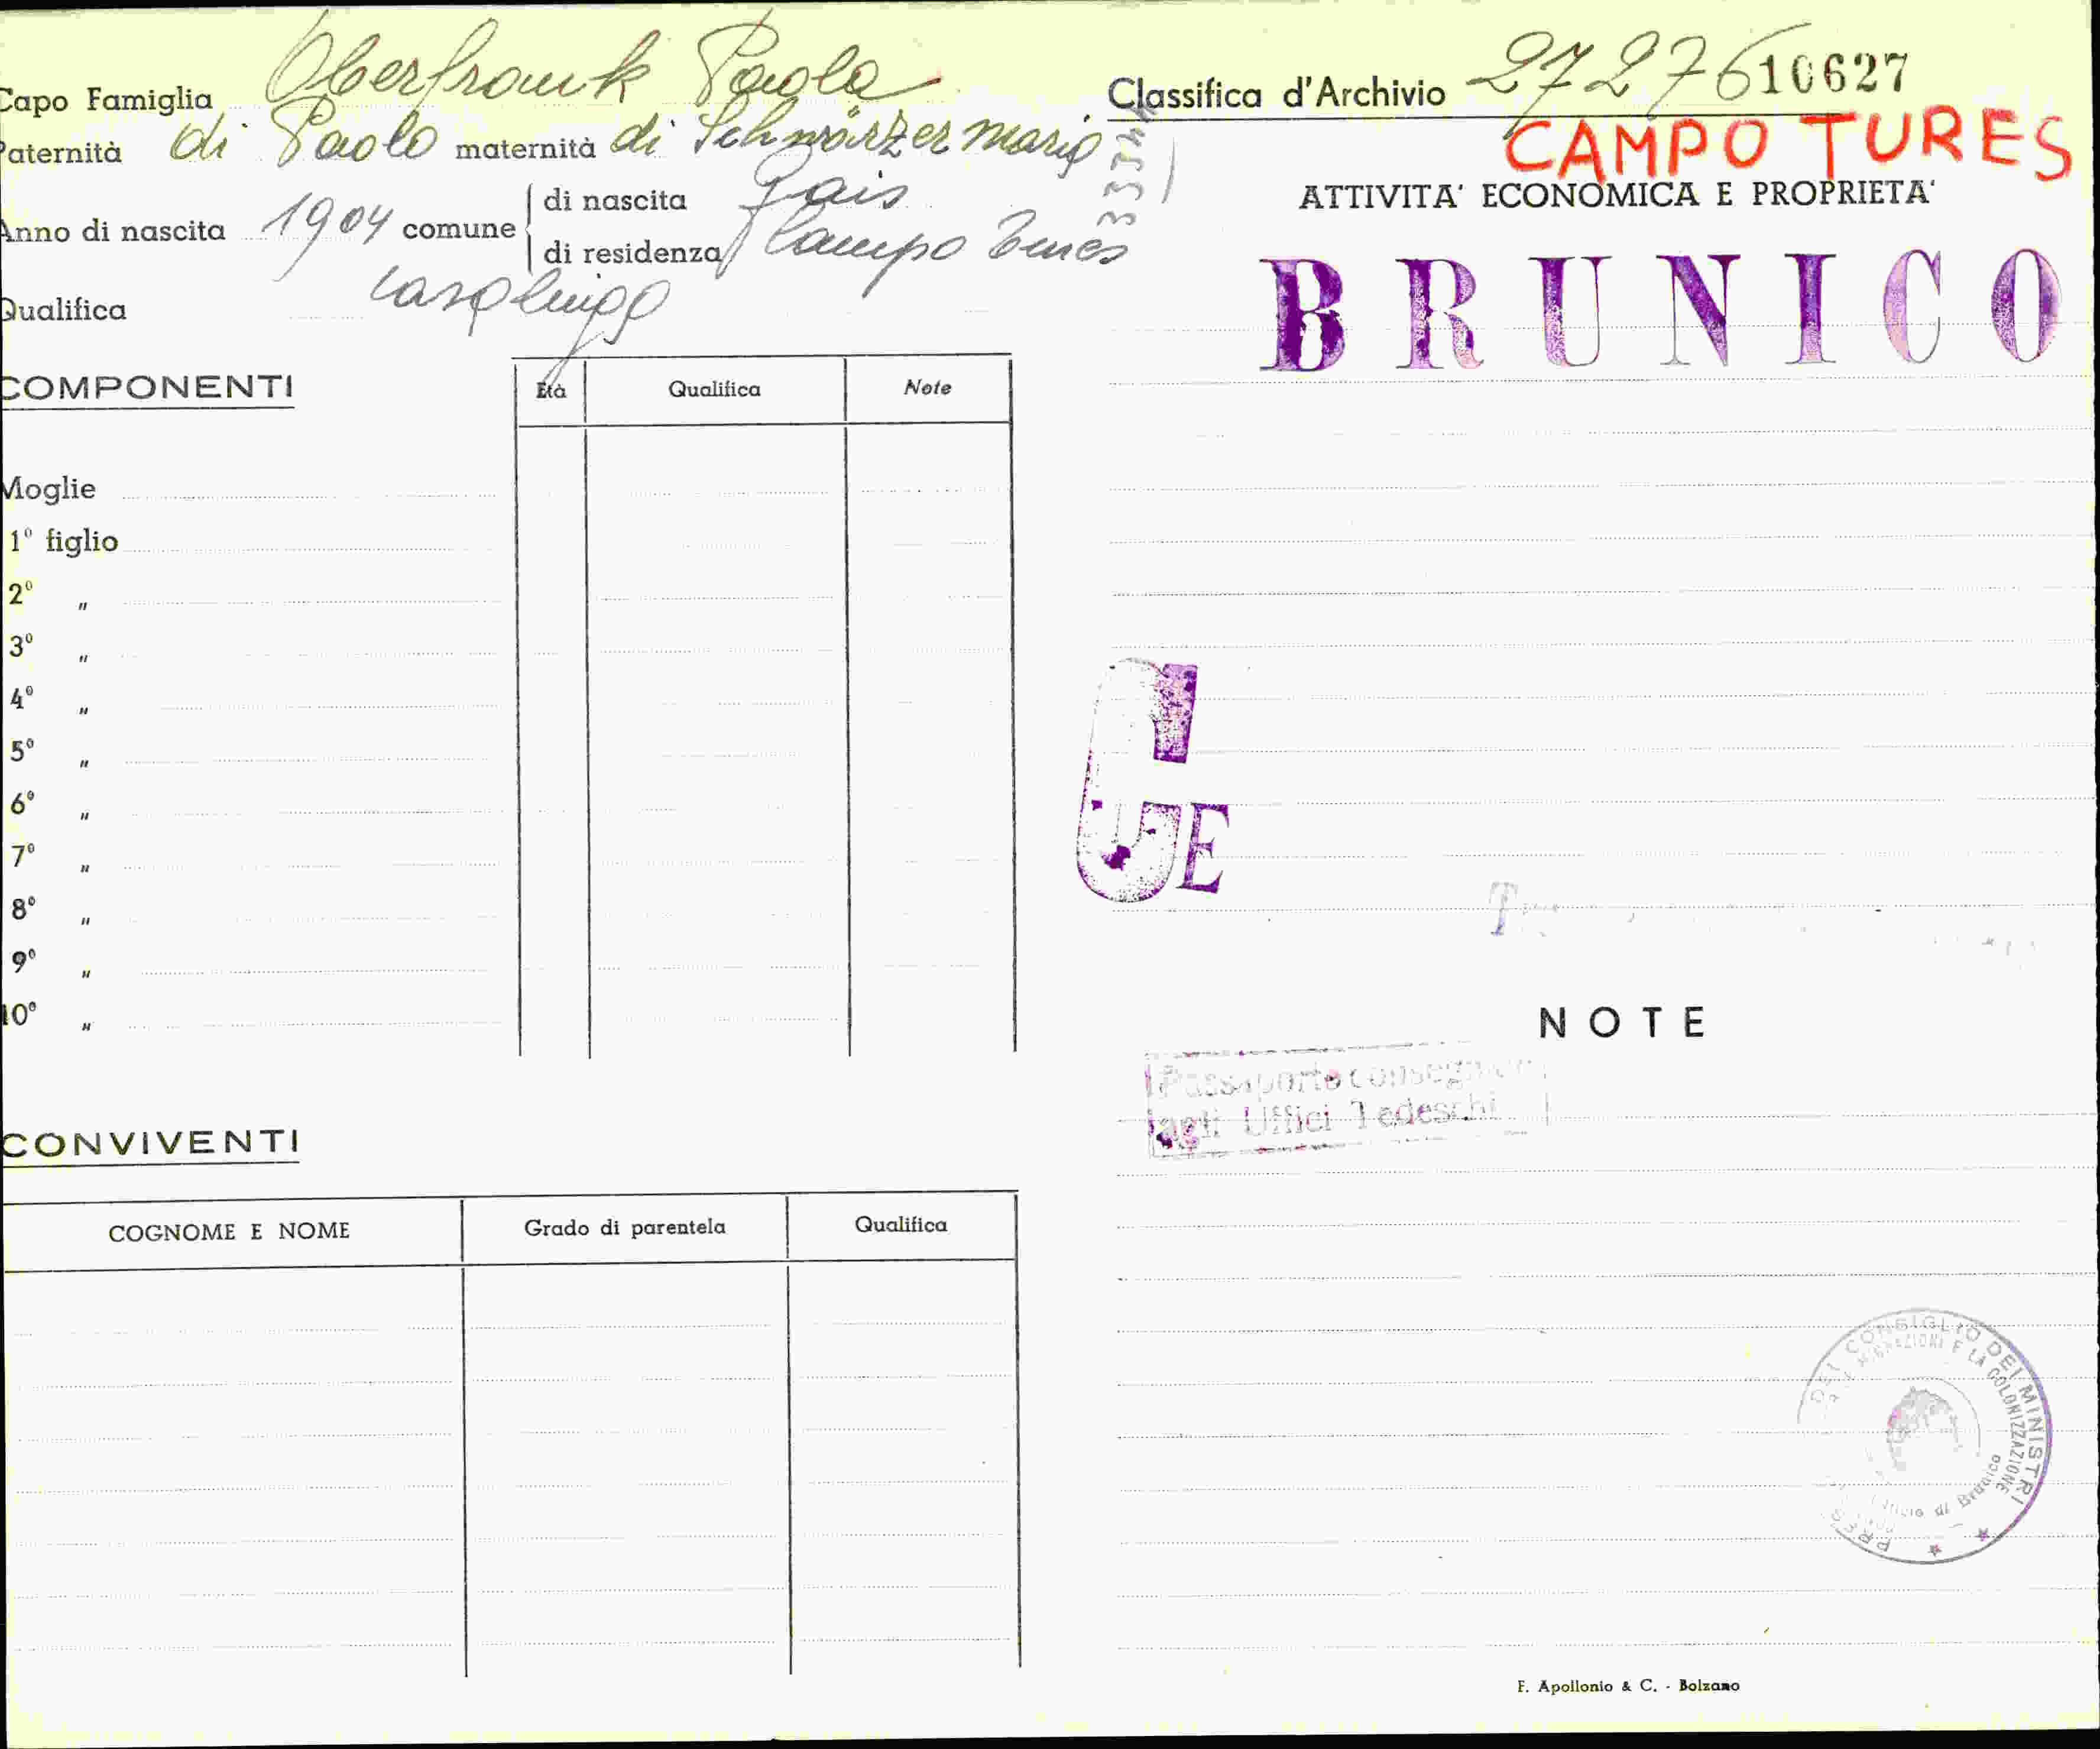 Capo Famiglia Oberfrank Paola
Paternità di Paolo maternità di Schwärzer Maria
Anno di nascita 1904 comune di nascita Gais
di residenza Campo Tures
Qualifica casalinga
COMPONENTI
Età Qualifica Note
Moglie
1° figlio
2° "
3° "
4° "
5° "
6° "
7° "
8° "
9° "
10° "
CONVIVENTI
COGNOME E NOME Grado di parentela Qualifica
Classifica d'Archivio 27276 10627
CAMPO TURES
ATTIVITA' ECONOMICA E PROPRIETA'
BRUNICO
G
E
NOTE
Passaporto
agli Uffici Tedeschi
PRES DEL CONSIGLIO DEI MINISTRI
MIGRAZIONI E LA COLONIZZAZIONE
di Brunico
F. Apollonio & C. - Bolzano